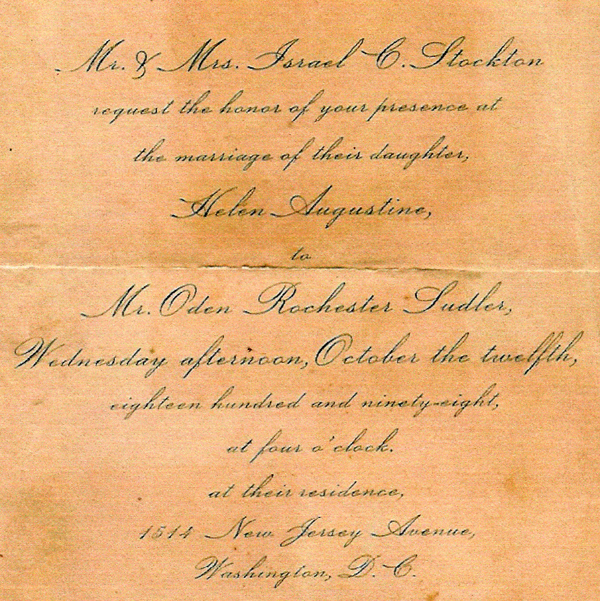 Mr. & Mrs. Israel C. Stockton
request the honor of your presence at
the marriage of their daughter,
Helen Augustine,
to
Mr. Oden Rochester Sudler,
Wednesday afternoon, October the twelfth,
eighteen hundred and ninety-eight,
at four o'clock.
at their residence,
1514 New Jersey Avenue,
Washington, D. C.